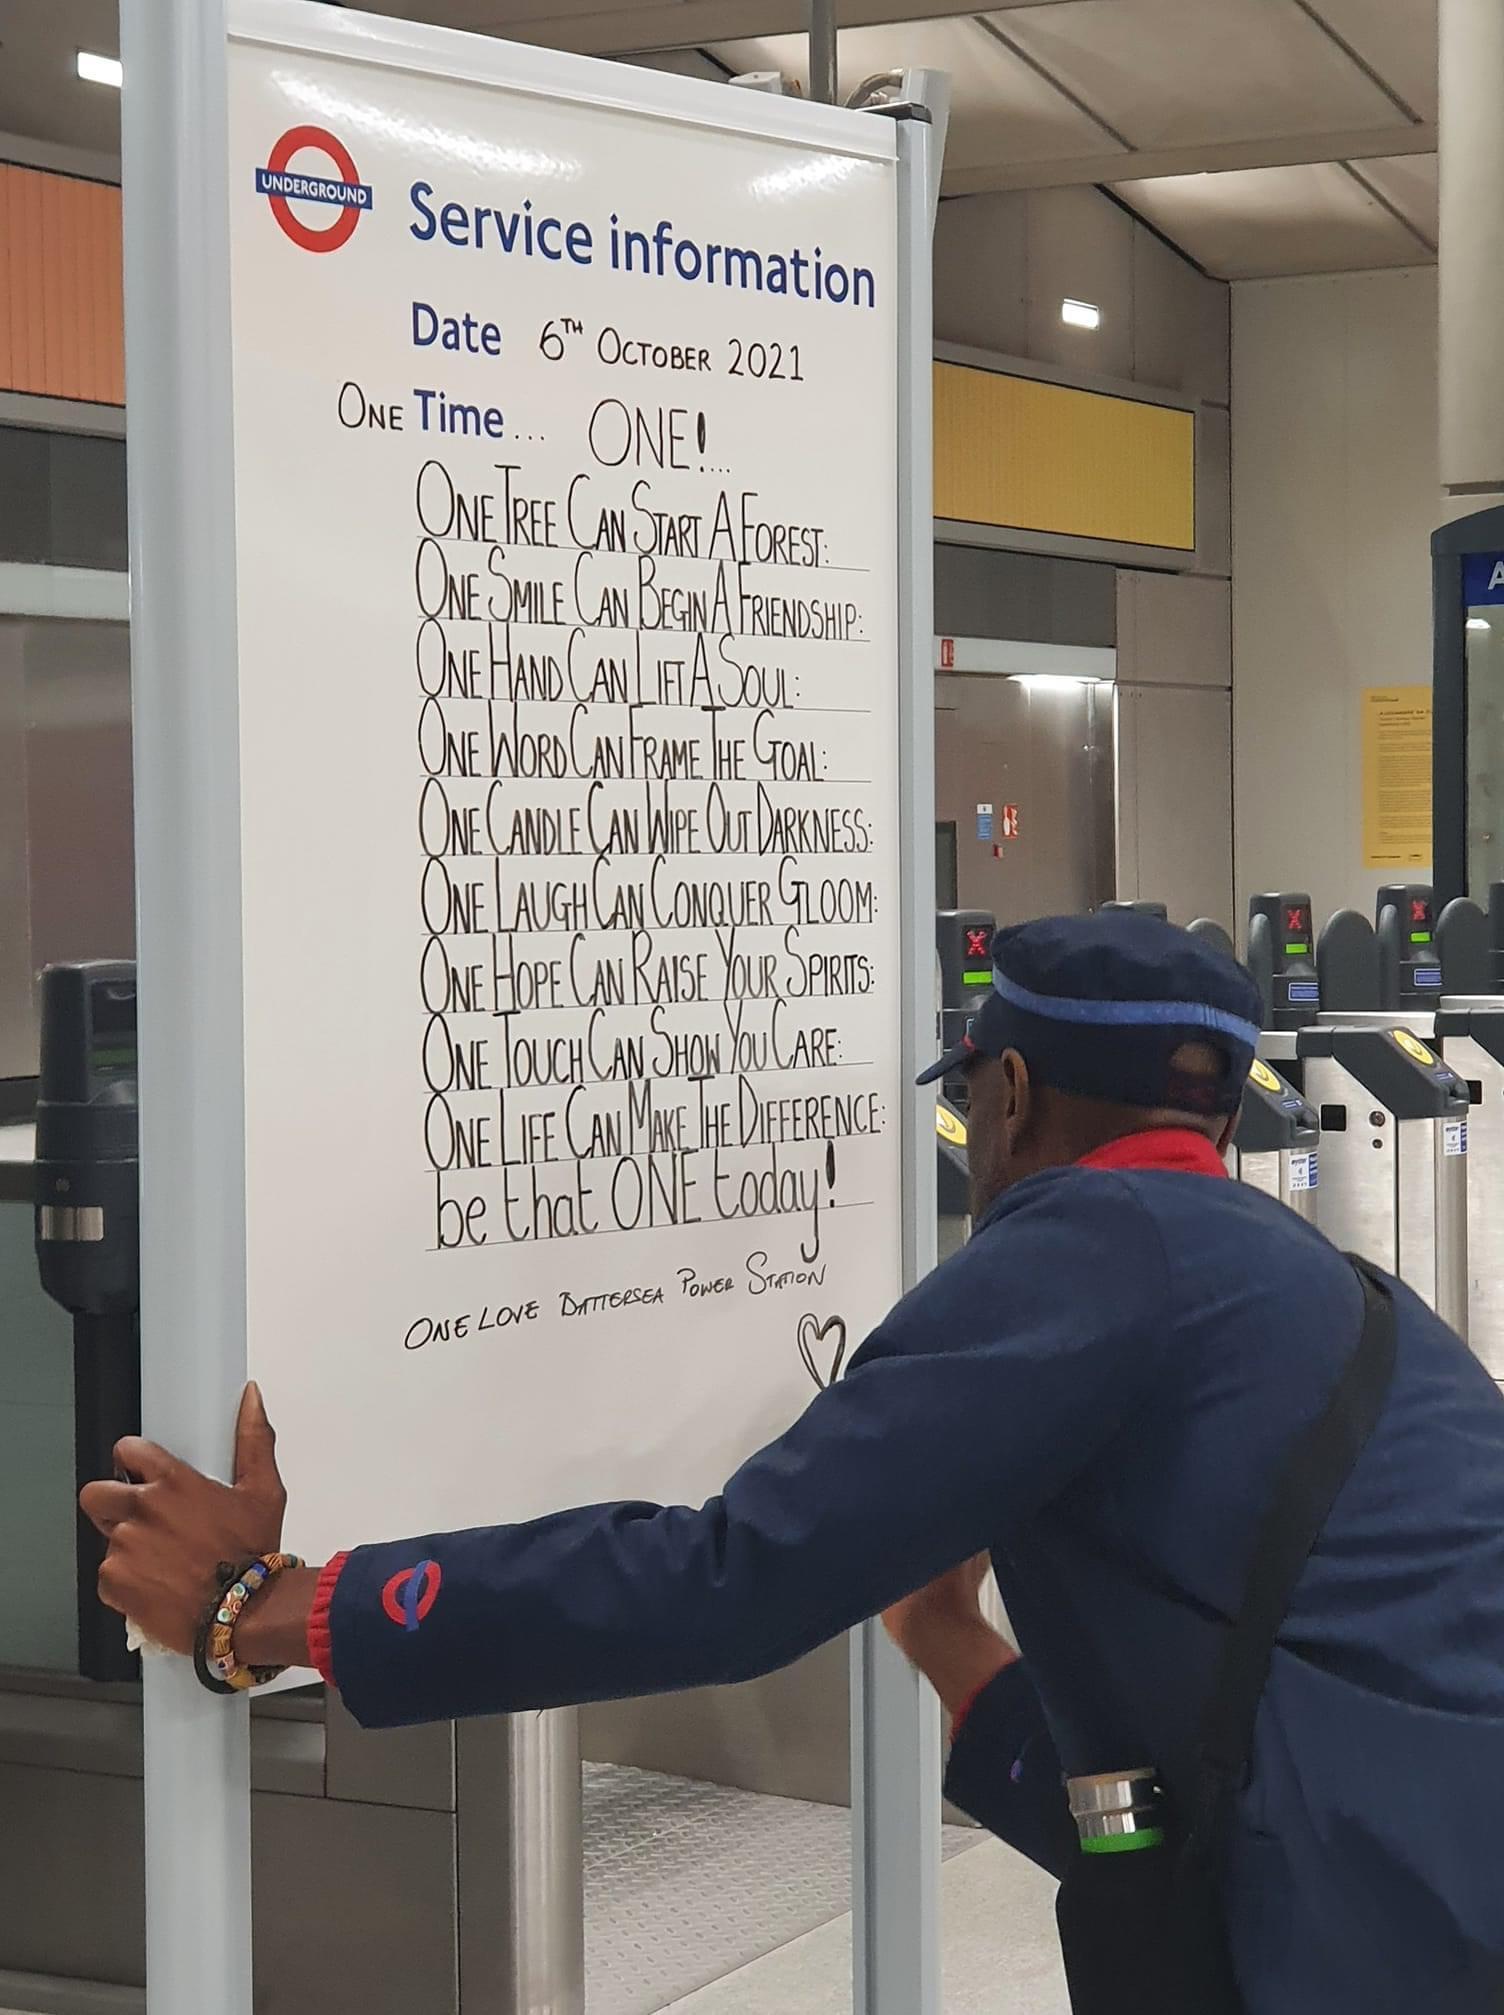 UNDERGROUND
Service information
Date 6TH OCTOBER 2021
ONE Time... ONE!...
ONE TREE CAN START A FOREST:
ONE SMILE CAN BEGIN A FRIENDSHIP:
ONE HAND CAN LIFT A SOUL:
ONE WORD CAN FRAME THE GOAL:
ONE CANDLE CAN WIPE OUT DARKNESS:
ONE LAUGH CAN CONQUER GLOOM:
ONE HOPE CAN RAISE YOUR SPIRITS:
ONE TOUCH CAN SHOW YOU CARE:
ONE LIFE CAN MAKE THE DIFFERENCE:
be that ONE today!
ONE LOVE BATTERSEA POWER STATION